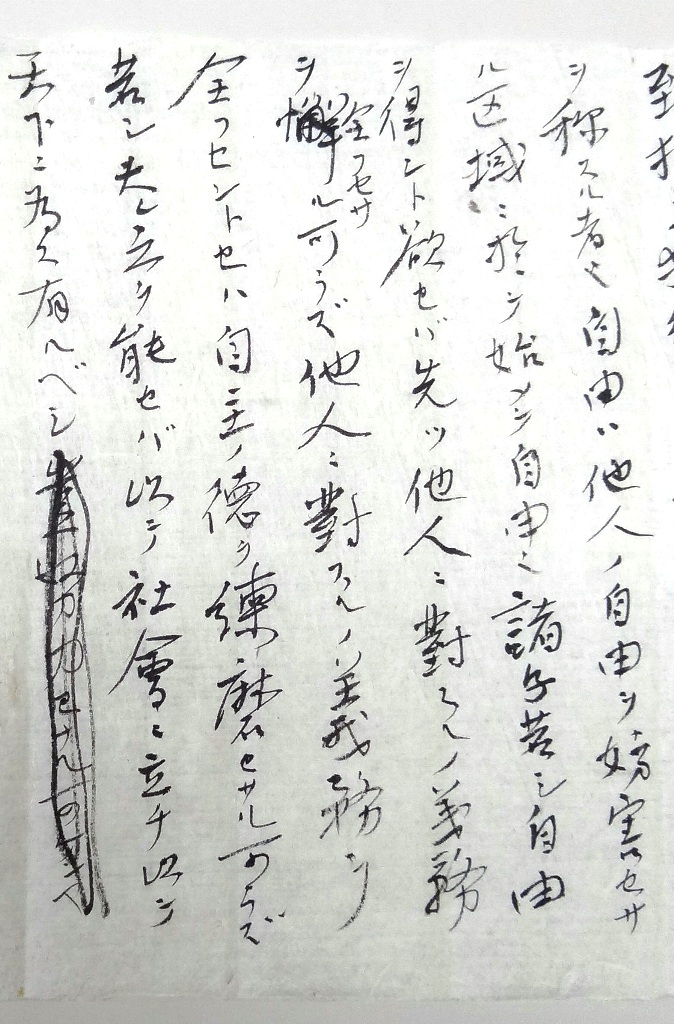 ヲ称スル者也自由ハ他人ノ自由ヲ妨害セサ
ル区域ニ於テ始メテ自由也諸子若シ自由
ヲ得ント欲セバ先ツ他人ニ對スルノ義務
ヲ全フセサル可ラズ他人ニ對スルノ義務ヲ
全フセントセハ自主ノ徳ヲ練磨セサル可ラズ
若シ夫レ之ヲ能セバ以テ社會ニ立チ以テ
天下ニ為ス有ルベシ